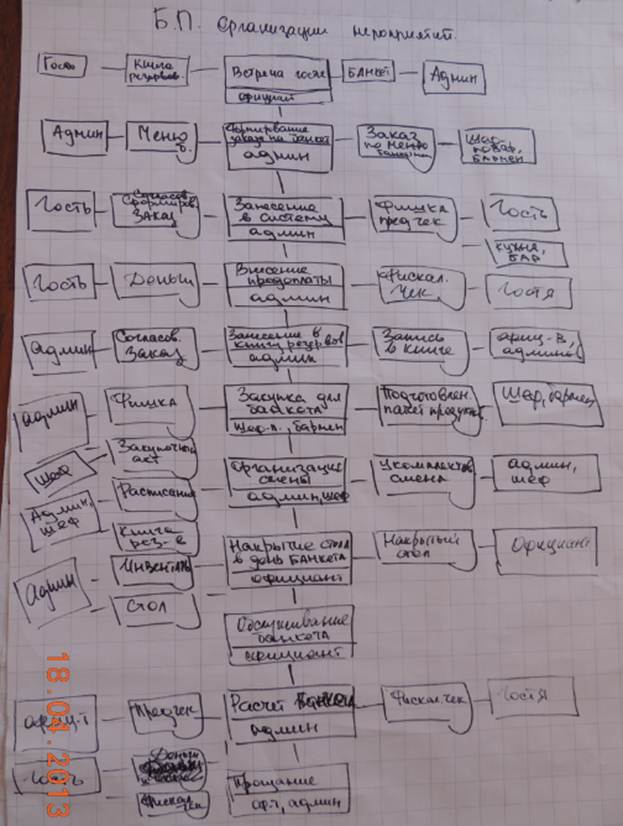 Б.П. Организации мероприятий.
Гость
Книга резервов.
Встреча гостя
официант
БАНКЕТ
Админ
Админ
Меню
б.
Формирование
заказа на банкет
админ
Заказ
по меню
банкетн
Шеф-
повар,
бармен
Гость
Согласов.
Сформиров.
ЗАКАЗ
Занесение
в систему
админ
Фишка
пред чек
Гость
кухня,
БАР
Гость
Деньги
Внесение
предоплаты
админ
Фискал.
чек.
Гостя
админ
Согласов.
Заказ
Занесение в
книгу резервов
админ
Запись
в книге
админ
Фишка
Закупка для
банкета
Шеф-п., бармен
Подготовлен.
пакет продуктов
Шеф, бармен
Шеф
Закупочный
акт
Организация
смены
админ, шеф
Укомплектов
смена
админ,
шеф
Админ,
шеф
Расписание
Книга
рез-в
Накрытие стола
в день БАНКЕТА
официант
Накрытый
стол
Официант
Админ
Инвентарь
Стол
Обслуживание
банкета
официант
офиц-т
Предчек
Расчет банкета
админ
Фискал.чек
Гостя
Гость
Деньги
Фискал
чек
Прощание
оф-т, админ
18.01.2013